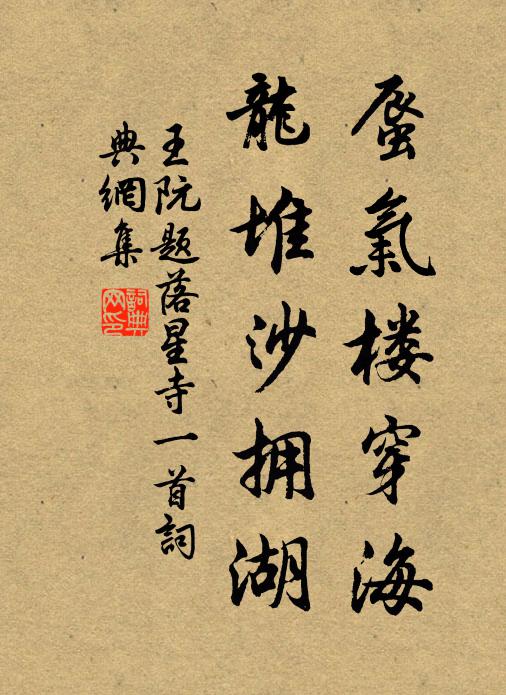 蜃氣楼穿海
龍堆沙拥湖
王阮题落星寺一首詞
典網集
詞典
网印